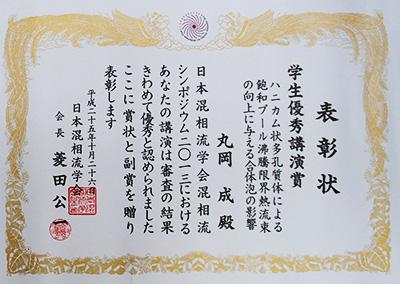 表彰状
学生優秀講演賞
ハニカム状多孔質体による
飽和プール沸騰限界熱流束
の向上に与える合体泡の影響
丸岡 成 殿
日本混相流学会混相流
シンポジウム二〇一三における
あなたの講演は審査の結果
きわめて優秀と認められました
ここに賞状と副賞を贈り
表彰します
平成二十五年十月二十六日
日本混相流学会
会長 菱田公一